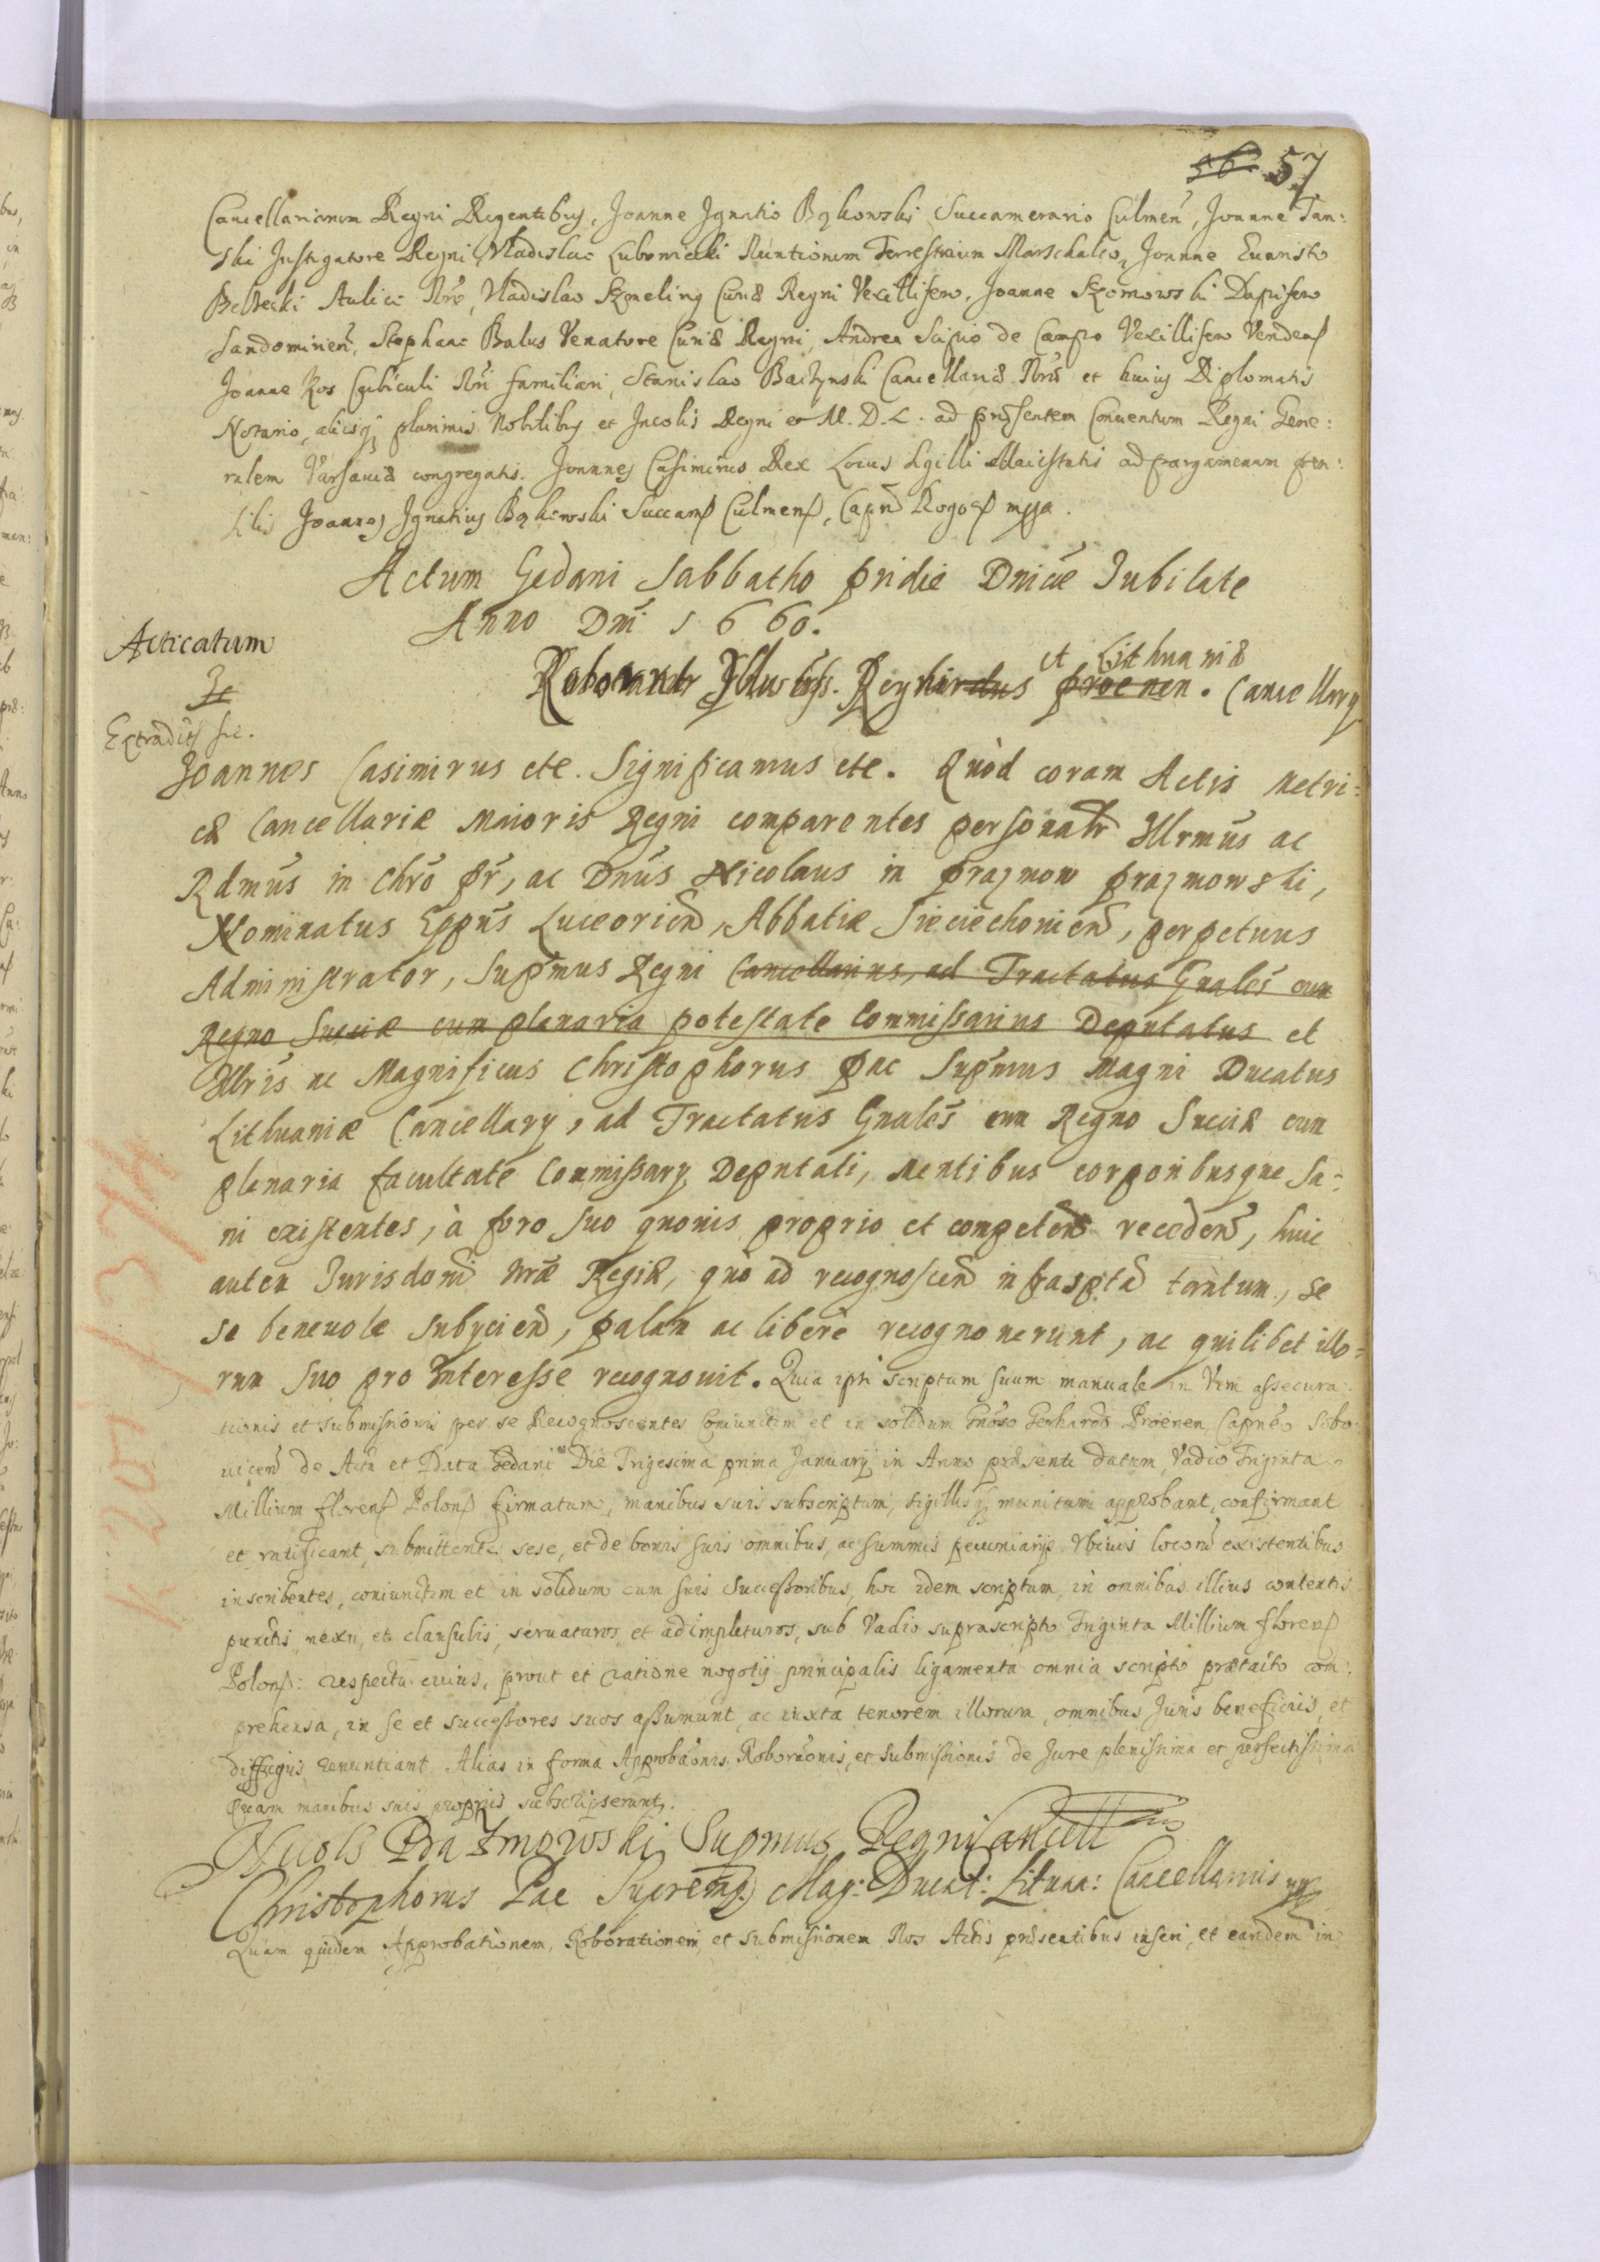 56 57
Cancellariarum Regni Regentibus, Joanne Ignatio Bąkowski Succamerario Culmeń, Joanne Tan:
ski Instigatore Regni, Vladislao Lubowiecki Nuntiorum Terrestrium Marschalco, Joanne Euaristo
Bełzecki Aulico Nrō, Vladislao Szmeling Curiæ Regni Vexillifero, Joanne Skomowski Dapifero
Sandomirień, Stephano Balus Venatore Curiæ Regni, Andrea Scipio de Campo Vexillifero Vendens
Joanne Kos Cubiculi Nrī familiari, Stanislao Baczynski Cancellariæ Nræ et huius Diplomatis
Notario, alijsq; plurimis Nobilibus et Incolis Regni et M. D. L. ad præsentem Conuentum Regni Gene:
ralem Varsauiæ congregatis. Joannes Casimirus Rex Locus Sigilli Maiestatis ad pargamenum pen:
silis Joannes Ignatius Bąkowski Succam Culmens, Capń Rogos mpa.
Actum Gedani Sabbatho pridie Dnicæ Jubilate
Anno Dni 1660.
Acticatum
et Lithuaniæ
Roborandr Illustriss. Regni Proenen. Cancellary
Extradit sic.
Joannes Casimirus etc. Significamus etc. Quòd coram Actis Metri-
cæ Cancellariæ Maioris Regni comparentes personalr Illrmus ac
Rdmus in Chrō Pr, ac Dnus Nicolaus in Prazmow Prazmowski,
Nominatus Eppus Luceorień, Abbatiæ Sieciechonień, perpetuus
Administrator, Supmus Regni Cancellarius, ad Tractatus Gnales cum
Regno Sueciæ cum plenaria potestate Commissarius Deputatus et
Illris ac Magnificus Christophorus Pac Supmus Magni Ducatus
Lithuaniæ Cancellary, ad Tractatus Gnales cum Regno Sueciæ cum
plenaria facultate Commissary Deputati, Mentibus corporibusque Sa-
ni existentes, à foro suo quouis proprio et competeń recedeń, huic
autem Jurisdoni Nræ Regiæ, quo ad recognosceń infrasptā tantum, se
se beneuole subycień, palam ac libere recognouerunt, ac quilibet illo-
rum suo pro Interesse recognouit. Quia ipsi scriptum suum manuale in Vim assecura:
tionis et submissionis per se Recognoscentes coniunctim et in solidum Gnoso Gerhardo Proenen Capneo Sobo:
uiceń de Actu et Data Gedani Die Trigesima prima January in Anno præsenti datum, Vadio Triginta
Millium florens Polons firmatum, manibus suis subscriptum, sigillisq; munitum approbant, confirmant
et ratificant, submittentes sese, et de bonis suis omnibus, ac summis pecuniarijs Vbiuis locorū existentibus
inscribentes, coniunctim et in solidum cum suis Successoribus, hoc idem scriptum, in omnibus illius contentis
punctis, nexu, et clausulis, seruaturos, et adimpleturos, sub Vadio suprascripto Triginta Millium florens
Polons: respectu cuius, prout et ratione negotij principalis ligamenta omnia scripto prætacto com:
prehensa, in se et successores suos assumunt, ac iuxta tenorem illorum, omnibus Juris beneficijs, et
diffugijs renuntiant. Alias in forma Approbaonis, Roboraonis, et submissionis de Jure plenissima et perfectissima
Quam manibus suis proprijs subscripserunt.
Nicols Prazmowski Supmus Regni Cancell
Christophorus Pac Supremg Mag: Ducat: Lituan: Cancellarius mp
Quam quidem Approbationem, Roborationem, et submissionem Nos Actis præsentibus inseri, et eandem in